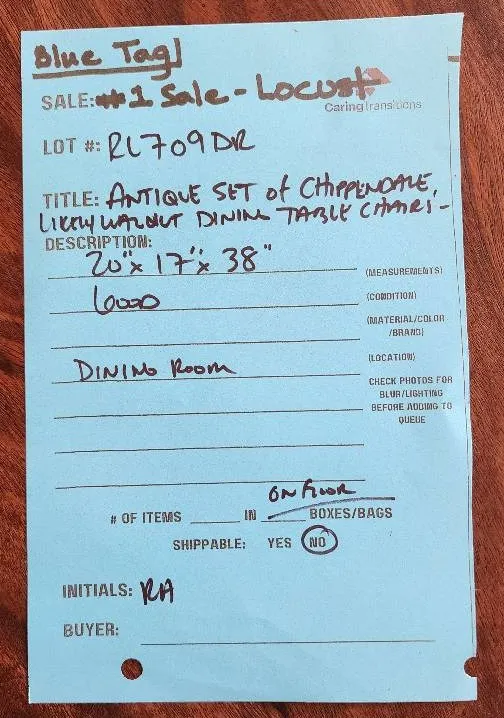 Blue Tag
SALE: #1 Sale - Locust
Caring Transitions
LOT #: RL709DR
TITLE: ANTIQUE SET OF CHIPPENDALE,
LIKELY WALNUT DINING TABLE CHAIRS -
DESCRIPTION:
20" x 17" x 38"
(MEASUREMENTS)
GOOD
(CONDITION)
(MATERIAL/COLOR
/BRAND)
DINING ROOM
(LOCATION)
CHECK PHOTOS FOR
BLUR/LIGHTING
BEFORE ADDING TO
QUEUE
ON FLOOR
# OF ITEMS ____ IN ____ BOXES/BAGS
SHIPPABLE: YES NO
INITIALS: RA
BUYER: